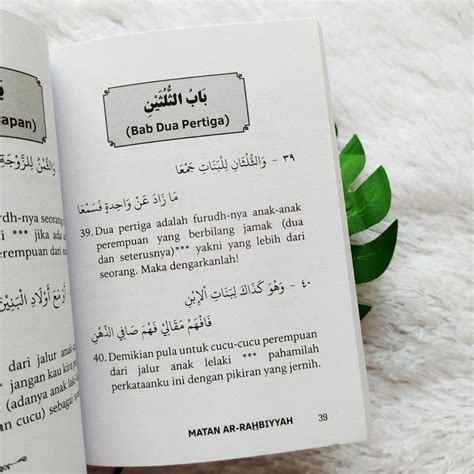 َـ
sapan)
وَالثُّمْنُ لِلزَّوْجَةِ
urdh-nya seorang
i *** jika ada
erempuan dari
أَوْ مَعَ أَوْلَادِ الْبَنِيْنَ
dari jalur anak-
jangan kau kira
(adanya anak
an cucu) sebagai
بَابُ الثُّلُثَيْنِ
(Bab Dua Pertiga)
٣٩ - وَالثُّلُثَانِ لِلْبَنَاتِ جَمْعَا
مَا زَادَ عَنْ وَاحِدَةٍ فَسَمْعَا
39. Dua pertiga adalah furudh-nya anak-anak
perempuan yang berbilang jamak (dua
dan seterusnya)*** yakni yang lebih dari
seorang. Maka dengarkanlah!
٤٠ - وَهْوَ كَذَاكَ لِبَنَاتِ الْاِبْنِ
فَافْهَمْ مَقَالِيْ فَهْمَ صَافِي الذِّهْنِ
40. Demikian pula untuk cucu-cucu perempuan
dari jalur anak lelaki *** pahamilah
perkataanku ini dengan pikiran yang jernih.
MATAN AR-RAḤBIYYAH
39